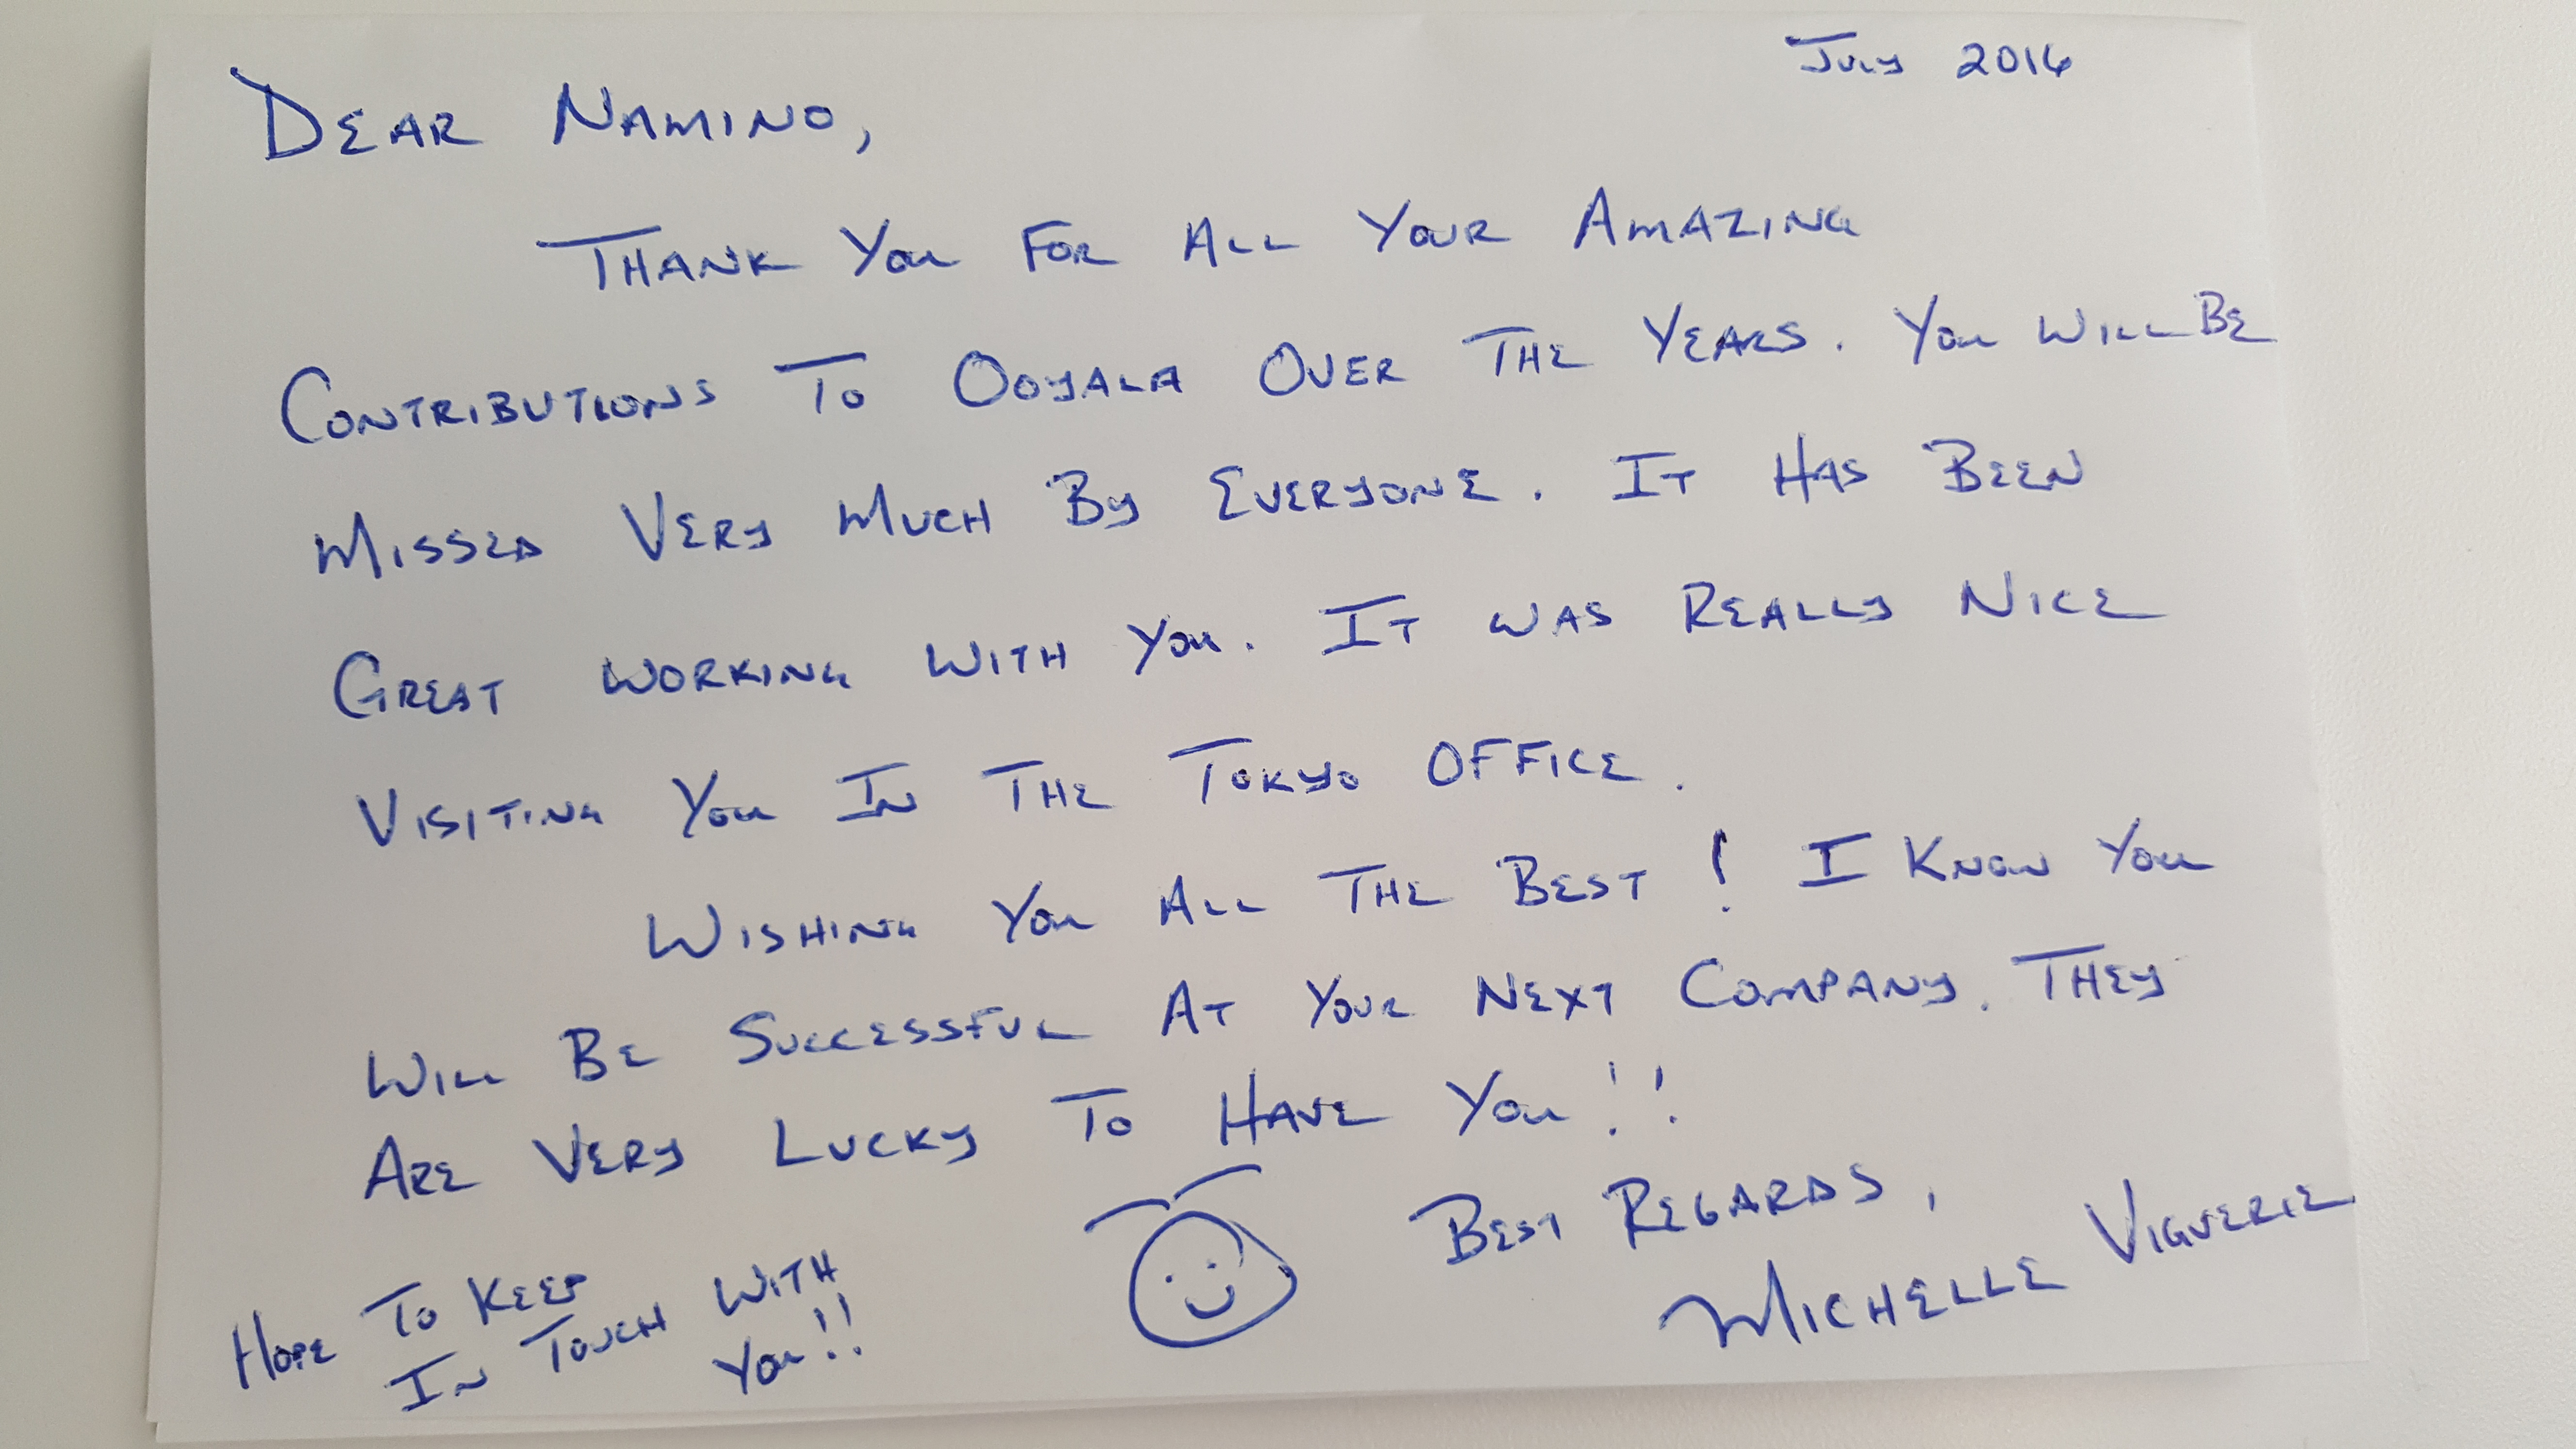 July 2016
DEAR NAMINO,
THANK YOU FOR ALL YOUR AMAZING
CONTRIBUTIONS TO OOYALA OVER THE YEARS. YOU WILL BE
MISSED VERY MUCH BY EVERYONE. IT HAS BEEN
GREAT WORKING WITH YOU. IT WAS REALLY NICE
VISITING YOU IN THE TOKYO OFFICE.
WISHING YOU ALL THE BEST! I KNOW YOU
WILL BE SUCCESSFUL AT YOUR NEXT COMPANY. THEY
ARE VERY LUCKY TO HAVE YOU!!
BEST REGARDS,
MICHELLE VIGUERIE
HOPE TO KEEP WITH
IN TOUCH YOU!!